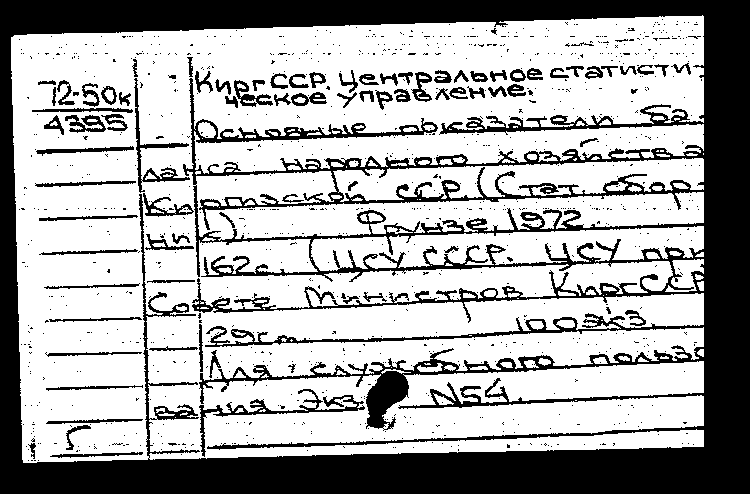 72-50к
4395
КиргССР. Центральное статисти-
ческое управление.
Основные показатели ба-
ланса народного хозяйства
Киргизской ССР. (Стат. сбор-
ник). Фрунзе, 1972.
162с. (ЦСУ СССР. ЦСУ при
Совете Министров КиргССР
29см. 100экз.
Для служебного пользо
вания. Экз. N54.